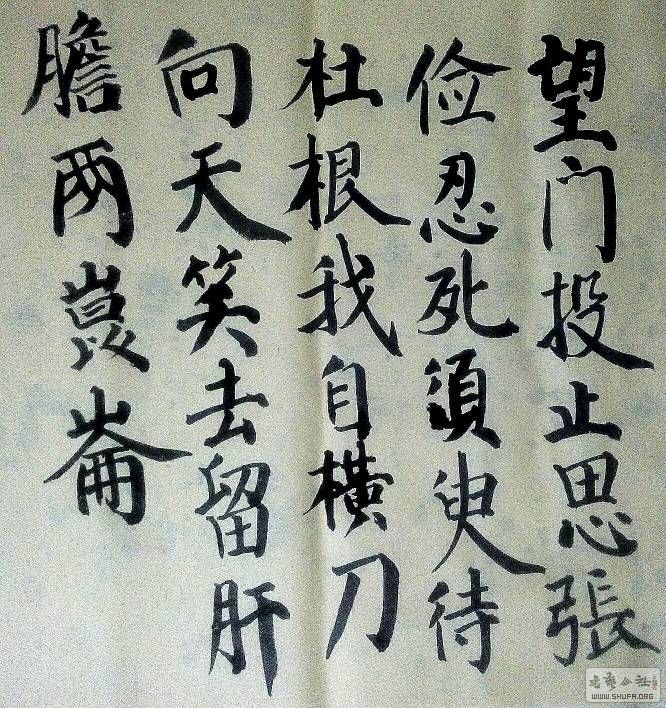 望门投止思張
俭忍死須臾待
杜根我自横刀
向天笑去留肝
膽两崑崙
WWW.SHUFA.ORG